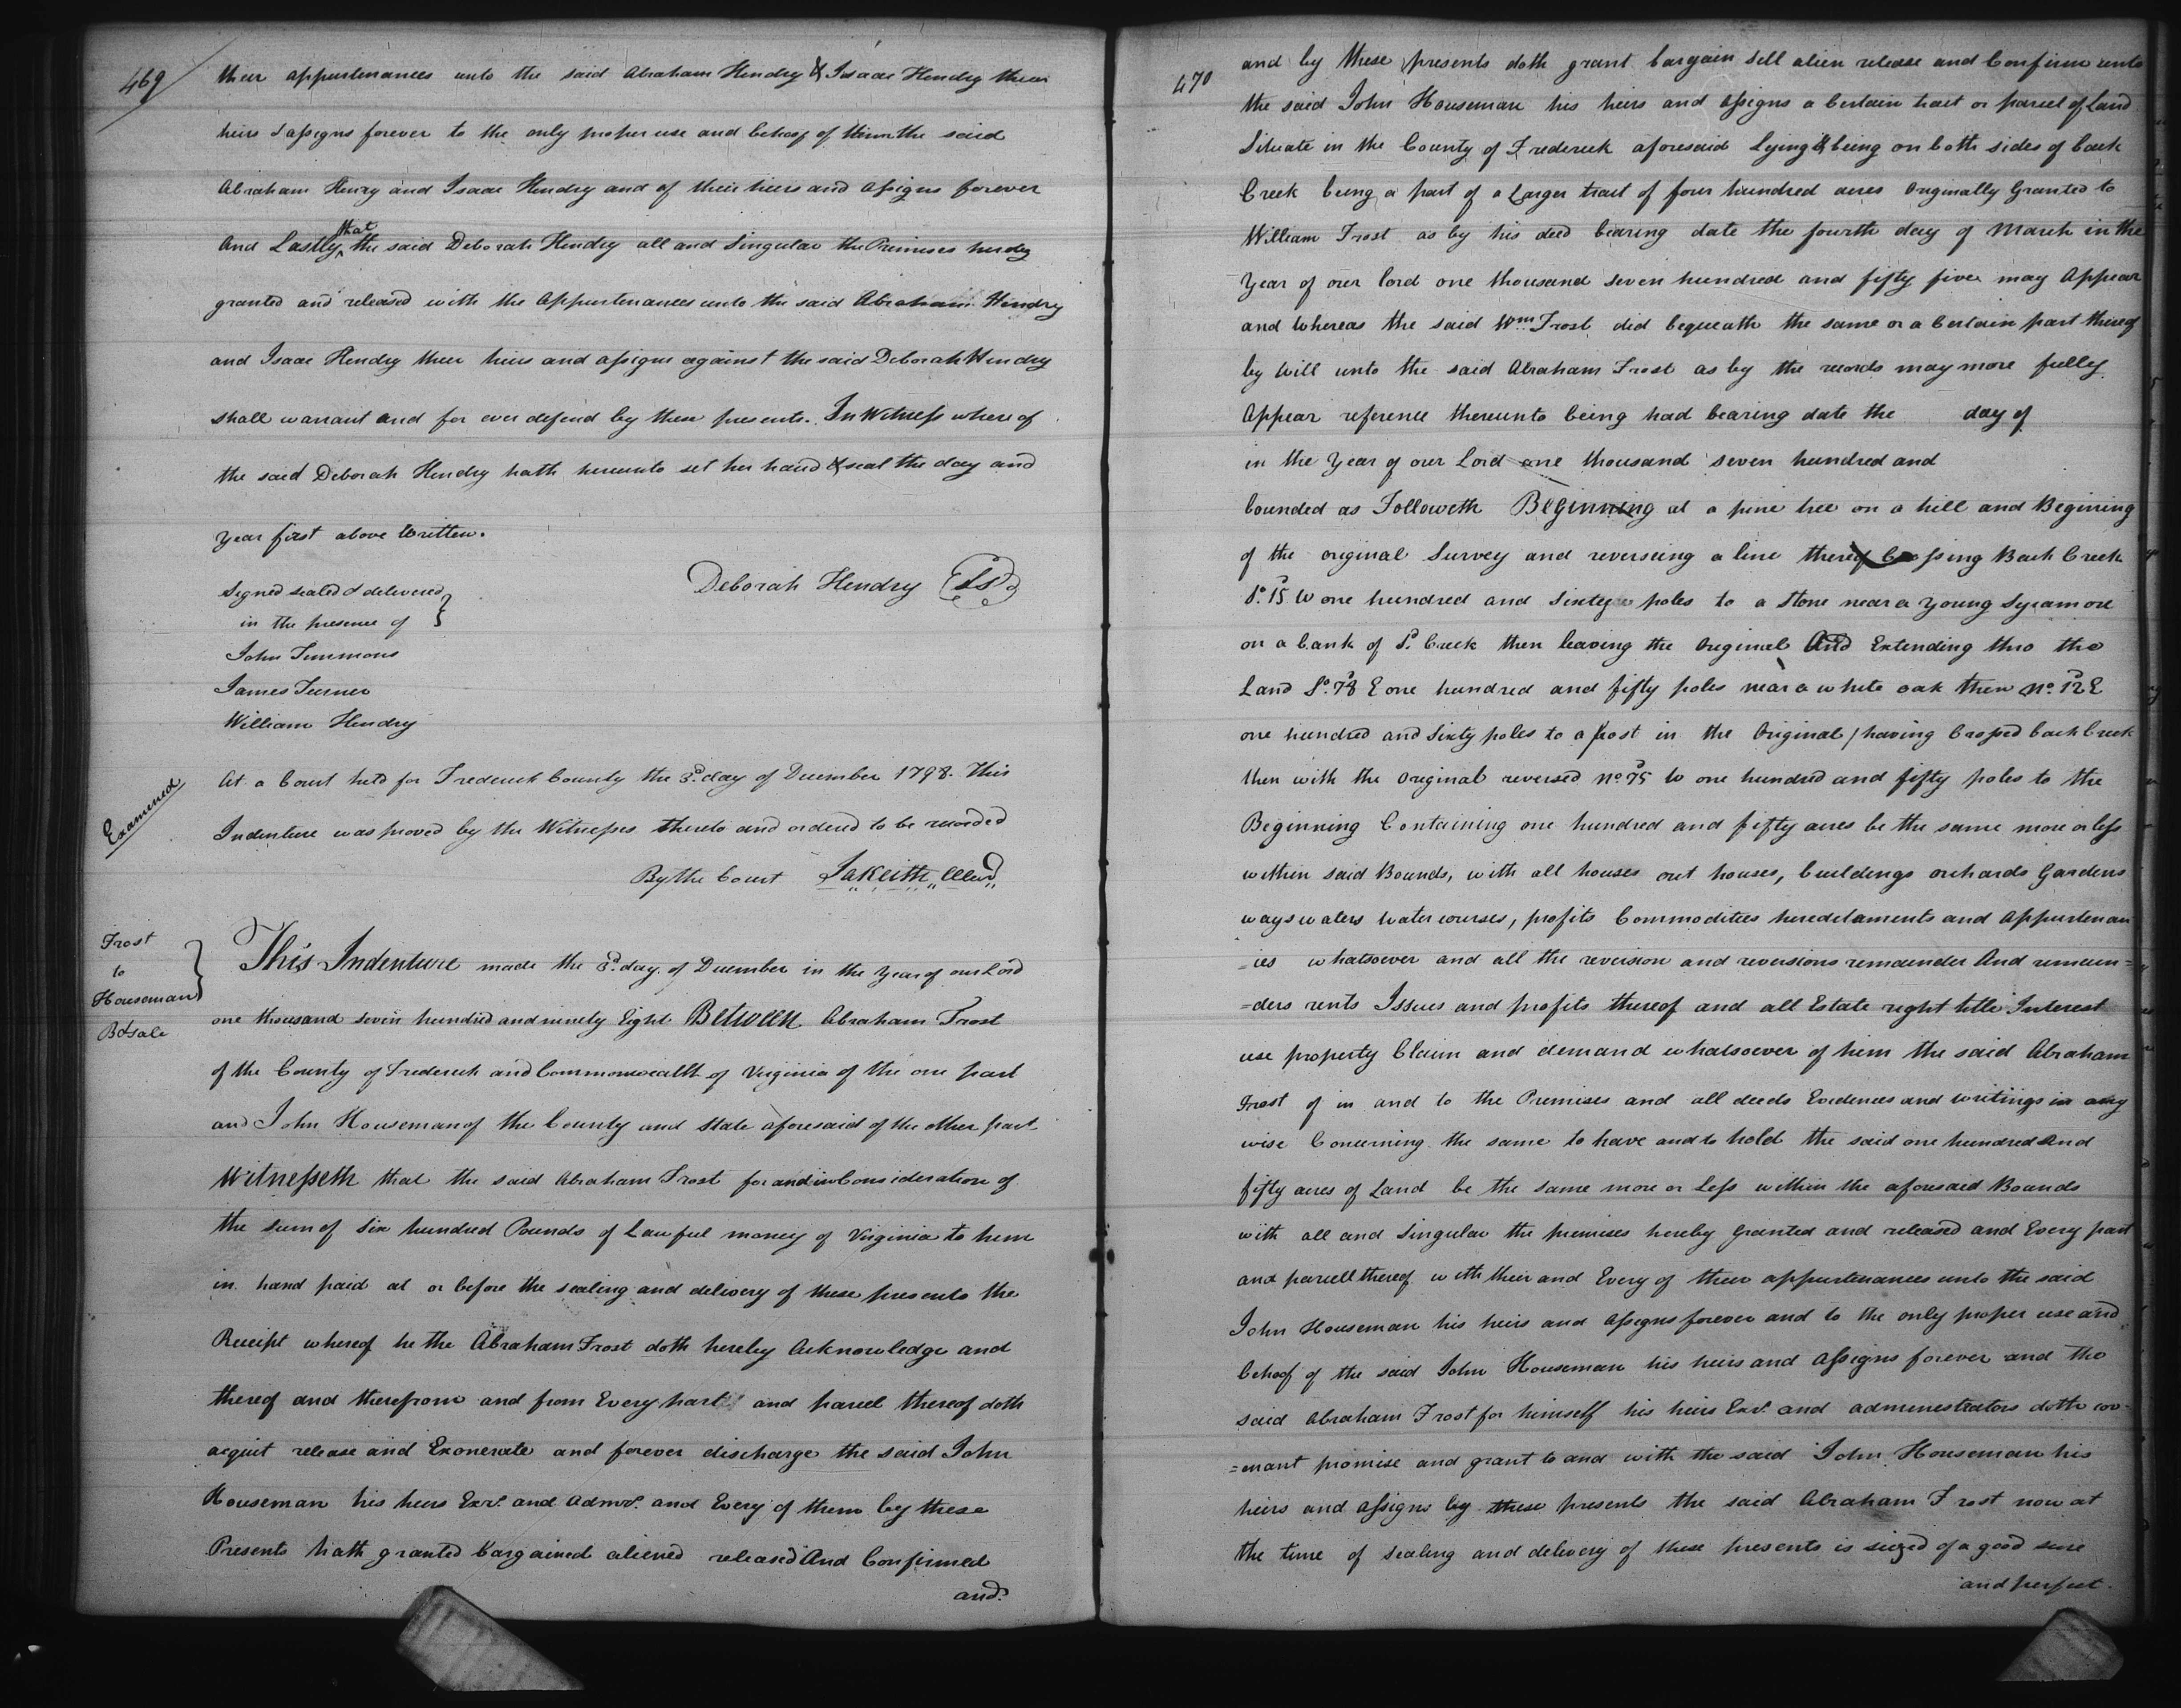 469
their appurtenances unto the said Abraham Hendry & Isaac Hendry their
heirs & assigns forever to the only proper use and behoof of them the said
Abraham Henry and Isaac Hendry and of their heirs and assigns forever
And Lastly, that the said Deborah Hendry all and Singular the Premises hereby
granted and released with the Appurtenances unto the said Abraham Hendry
and Isaac Hendry their heirs and assigns against the said Deborah Hendry
shall warrant and for ever defend by these presents. In Witness where of
the said Deborah Hendry hath hereunto set her hand & seal the day and
year first above Written.
Deborah Hendry (Ls)
Signed sealed & delivered
in the presence of
John Timmons
James Turner
William Hendry
Examined
At a Court held for Frederick County the 3d. day of December 1798. This
Indenture was proved by the Witnesses thereto and ordered to be recorded
By the Court
Frost
to
Houseman
B&sale
This Indenture made the 3d. day of December in the Year of our Lord
one thousand seven hundred and ninety Eight Between Abraham Frost
of the County of Frederick and Commonwealth of Virginia of the one part
and John Houseman of the County and State aforesaid of the other part
Witnesseth that the said Abraham Frost for and in Consideration of
the sum of Six hundred Pounds of Lawful money of Virginia to him
in hand paid at or before the sealing and delivery of these presents the
Receipt whereof he the Abraham Frost doth hereby Acknowledge and
thereof and therefrom and from Every part and parcel thereof doth
acquit release and Exonerate and forever discharge the said John
Houseman his heirs Exrs. and Admrs. and Every of them by these
Presents hath granted bargained aliened released And Confirmed
and
470
and by these presents doth grant bargain Sell alien release and Confirm unto
the said John Houseman his heirs and assigns a Certain tract or parcel of Land
Situate in the County of Frederick aforesaid Lying & being on both sides of back
Creek being a part of a Larger tract of four hundred acres Originally Granted to
William Frost as by his deed bearing date the fourth day of March in the
Year of our lord one thousand seven hundred and fifty five may Appear
and Whereas the said Wm. Frost did bequeath the same or a Certain part thereof
by Will unto the said Abraham Frost as by the records may more fully
Appear reference thereunto being had bearing date the day of
in the Year of our Lord one thousand seven hundred and
bounded as Followeth Beginning at a pine tree on a hill and Begining
of the original Survey and reverseing a line thereof Crossing Back Creek
So. 15d W one hundred and Sixty poles to a Stone near a Young Sycamore
on a bank of Sd. Creek then leaving the Original And Extending thro the
Land So. 78d E one hundred and fifty poles near a white oak then No. 12d E
one hundred and Sixty poles to a post in the Original / having Crossed back Creek
then with the Original reversed No. 75d W one hundred and fifty poles to the
Beginning Containing one hundred and fifty acres be the same more or less
within said Bounds, with all houses out houses, buildings orchards Gardens
ways waters Water courses, profits Commodities hereditaments and Appurtenan
=ies whatsoever and all the reversion and reversions remainder And remain=
=ders rents Issues and profits thereof and all Estate right title Interest
use property Claim and demand whatsoever of him the said Abraham
Frost of in and to the Premises and all deeds Evidences and writings in any
wise Concerning the same to have and to hold the said one hundred And
fifty acres of Land be the same more or Less within the aforesaid Bounds
with all and Singular the premises hereby Granted and released and Every part
and parcell thereof with their and Every of their appurtenances unto the said
John Houseman his heirs and Assigns forever and to the only proper use and
behoof of the said John Houseman his heirs and Assigns forever and the
said Abraham Frost for himself his heirs Exrs. and administrators doth cov-
=enant promise and grant to and with the said John Houseman his
heirs and Assigns by these presents the said Abraham Frost now at
the time of sealing and delivery of these presents is seized of a good sure
and perfect.